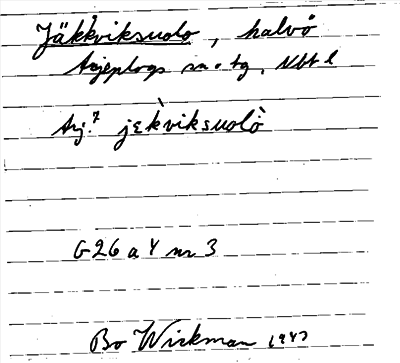 Jäkkviksuolo, halvö
Arjeplogs sn. o tg, Nbt l
Arj.7 jɛkviksuolò
G26 a 4 nr 3
Bo Wickman 1947